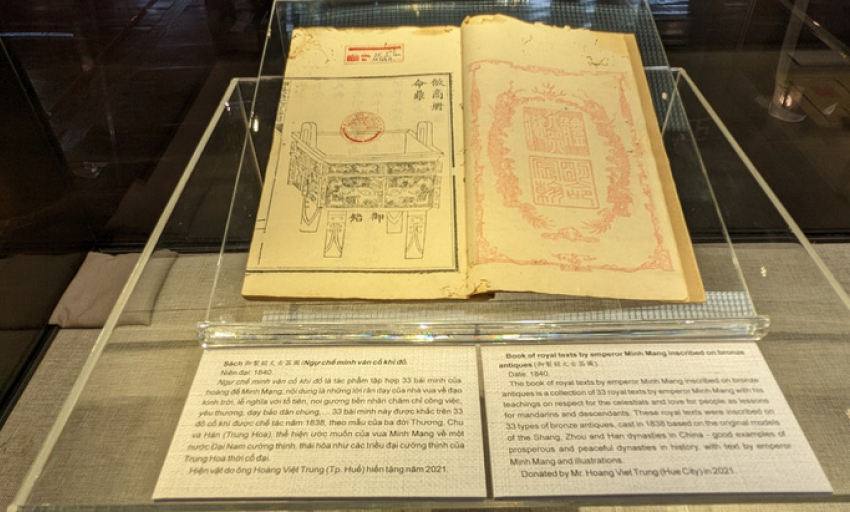 倣商冊
命鼎
御
銘
Sách 御製銘文古器圖 (Ngự chế minh văn cổ khí đồ.
Niên đại: 1840.
Ngự chế minh văn cổ khí đồ là tác phẩm tập hợp 33 bài minh của
hoàng đế Minh Mạng, nội dung là những lời răn dạy của nhà vua về đạo
kính trời, lễ nghĩa với tổ tiên, noi gương tiền nhân chăm chỉ công việc,
yêu thương, dạy bảo dân chúng,... 33 bài minh này được khắc trên 33
đồ cổ khí được chế tác năm 1838, theo mẫu của ba đời Thương, Chu
và Hán (Trung Hoa), thể hiện ước muốn của vua Minh Mạng về một
nước Đại Nam cường thịnh, thái hòa như các triều đại cường thịnh của
Trung Hoa thời cổ đại.
Hiện vật do ông Hoàng Việt Trung (Tp. Huế) hiến tặng năm 2021.
Book of royal texts by emperor Minh Mang inscribed on bronze
antiques (御製銘文古器圖).
Date: 1840.
The book of royal texts by emperor Minh Mang inscribed on bronze
antiques is a collection of 33 royal texts by emperor Minh Mang with his
teachings on respect for the celestials and love for people as lessons
for mandarins and descendants. These royal texts were inscribed on
33 types of bronze antiques, cast in 1838 based on the original models
of the Shang, Zhou and Han dynasties in China - good examples of
prosperous and peaceful dynasties in history, with text by emperor
Minh Mang and illustrations.
Donated by Mr. Hoang Viet Trung (Hue City) in 2021.